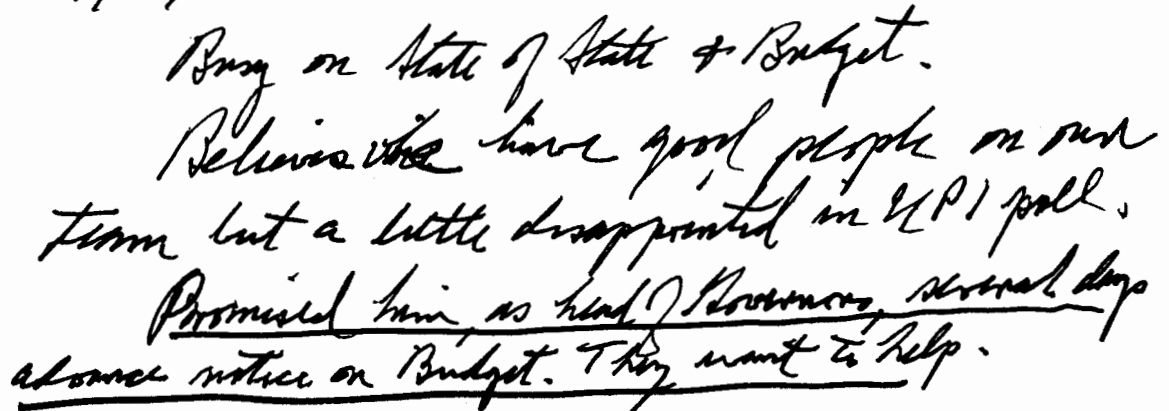 Busy on State of State & Budget.
Believes we have good people on our
team but a little disappointed in UPI poll.
Promised him, as head of Governors, several days
advance notice on Budget. They want to help.